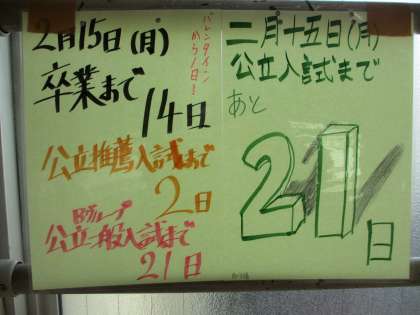 2月15日(月)
バレンタイン
から1日!
卒業まで
14日
公立推薦入試まで
2日
Bグループ
公立一般入試まで
21日
二月十五日(月)
公立入試まで
あと
21日